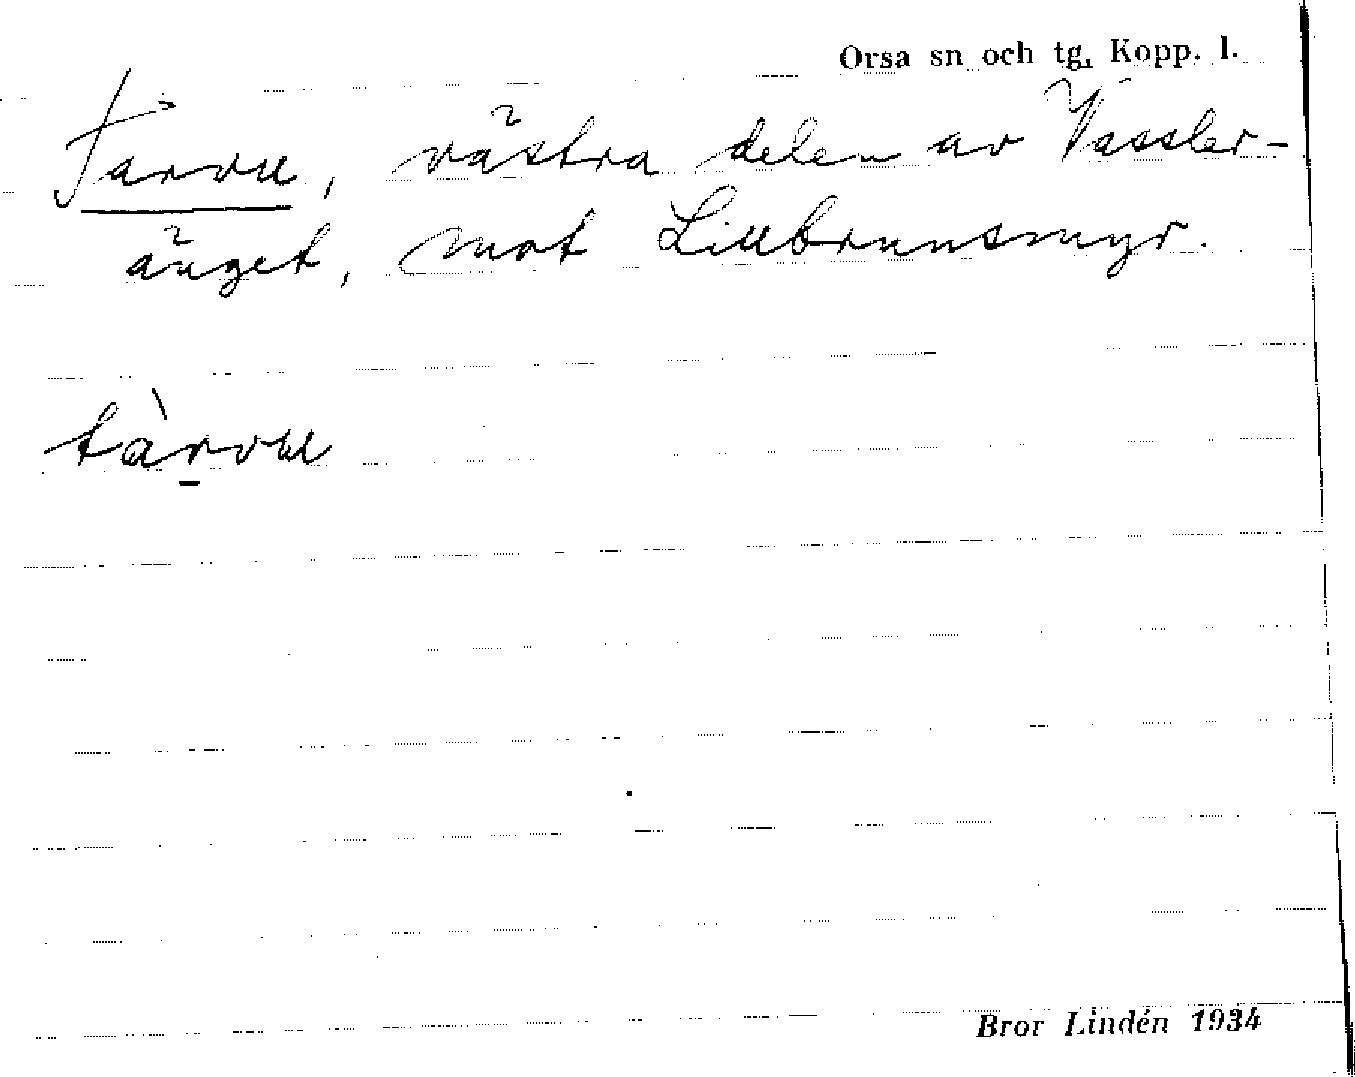 Orsa sn och tg. Kopp. l.
Tarvu, västra delen av Vassler-
änget, mot Lillbrunsmyr.
tàrvu
Bror Lindén 1934